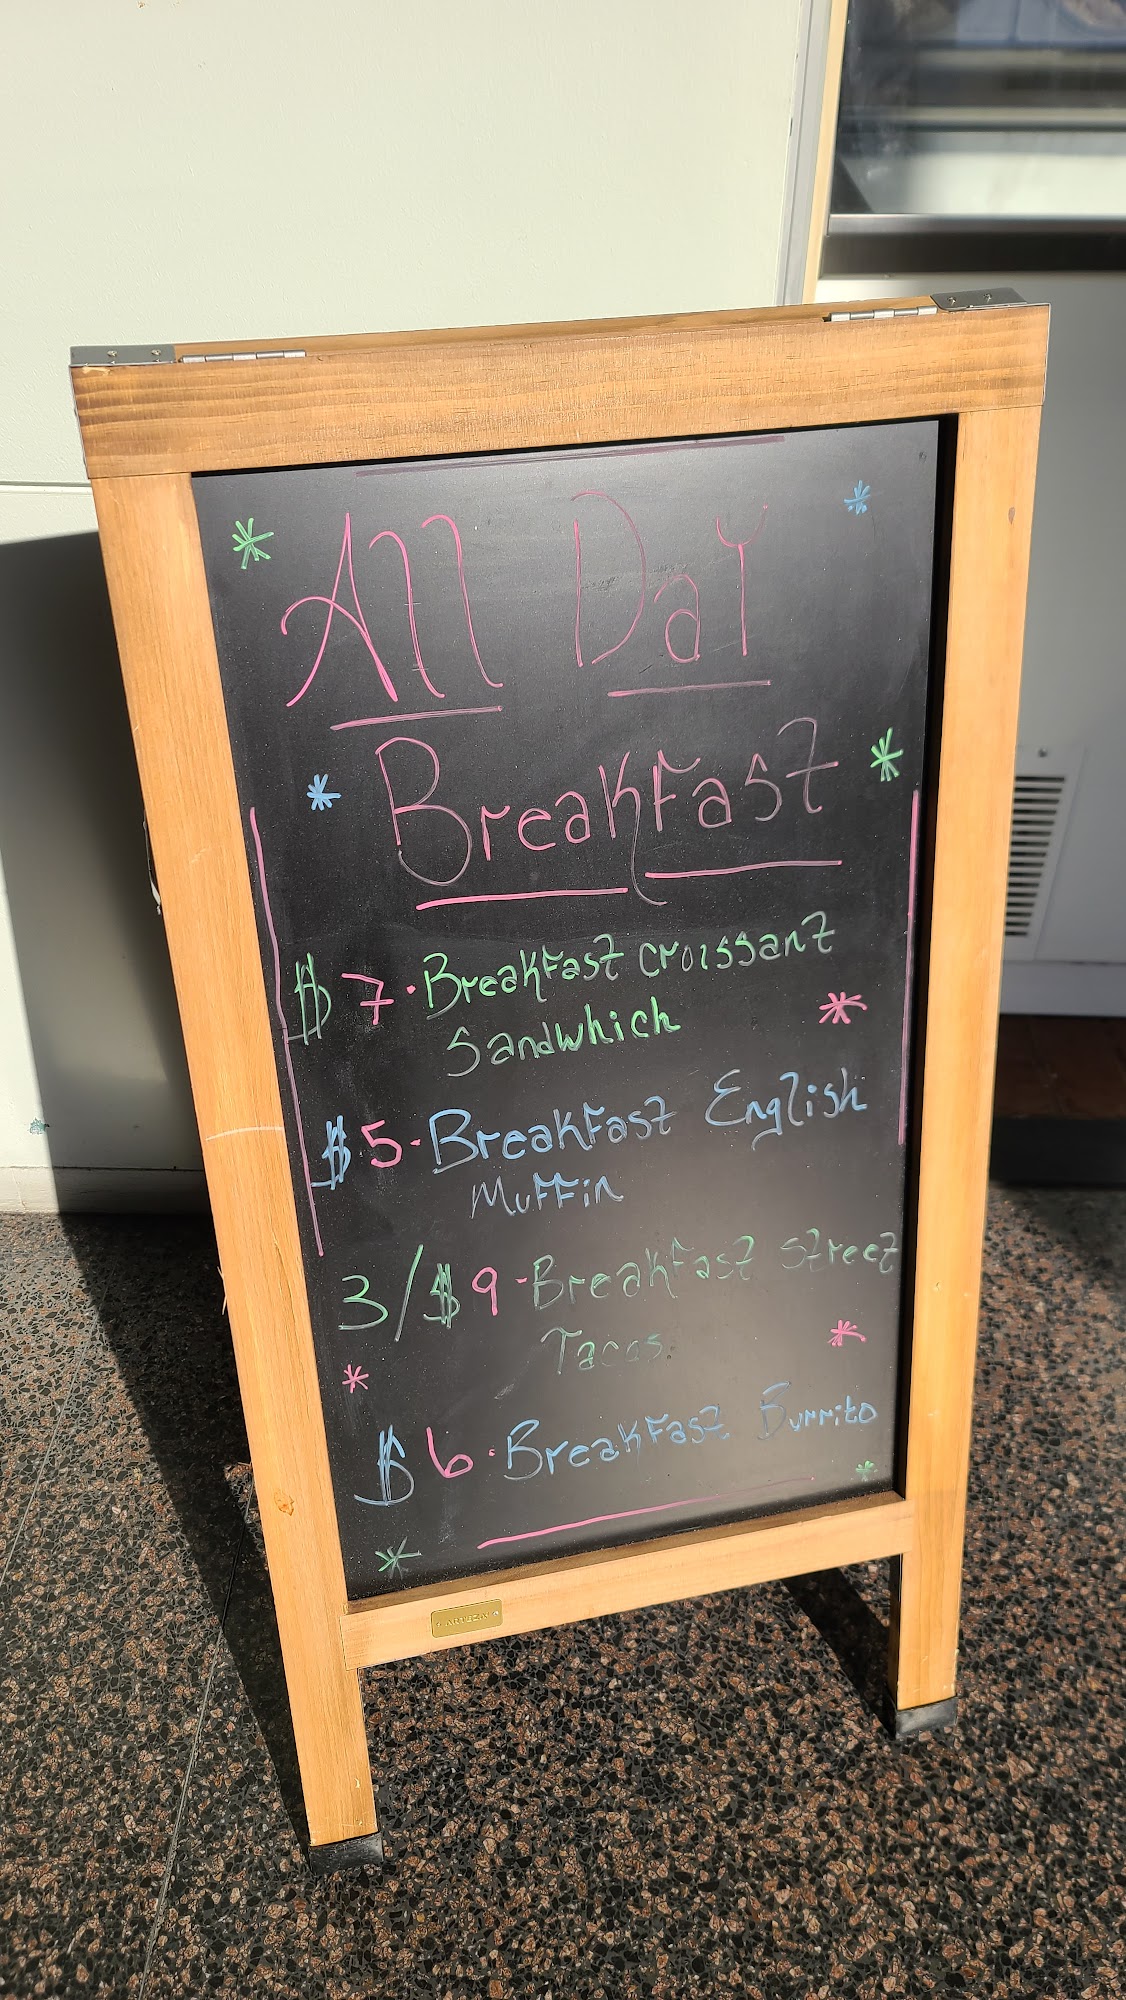 All Day
Breakfast
$7·Breakfast croissant
Sandwhich
$5-Breakfast English
Muffin
3/$9-Breakfast street
Tacos
$6·Breakfast Burrito
ARTEZA